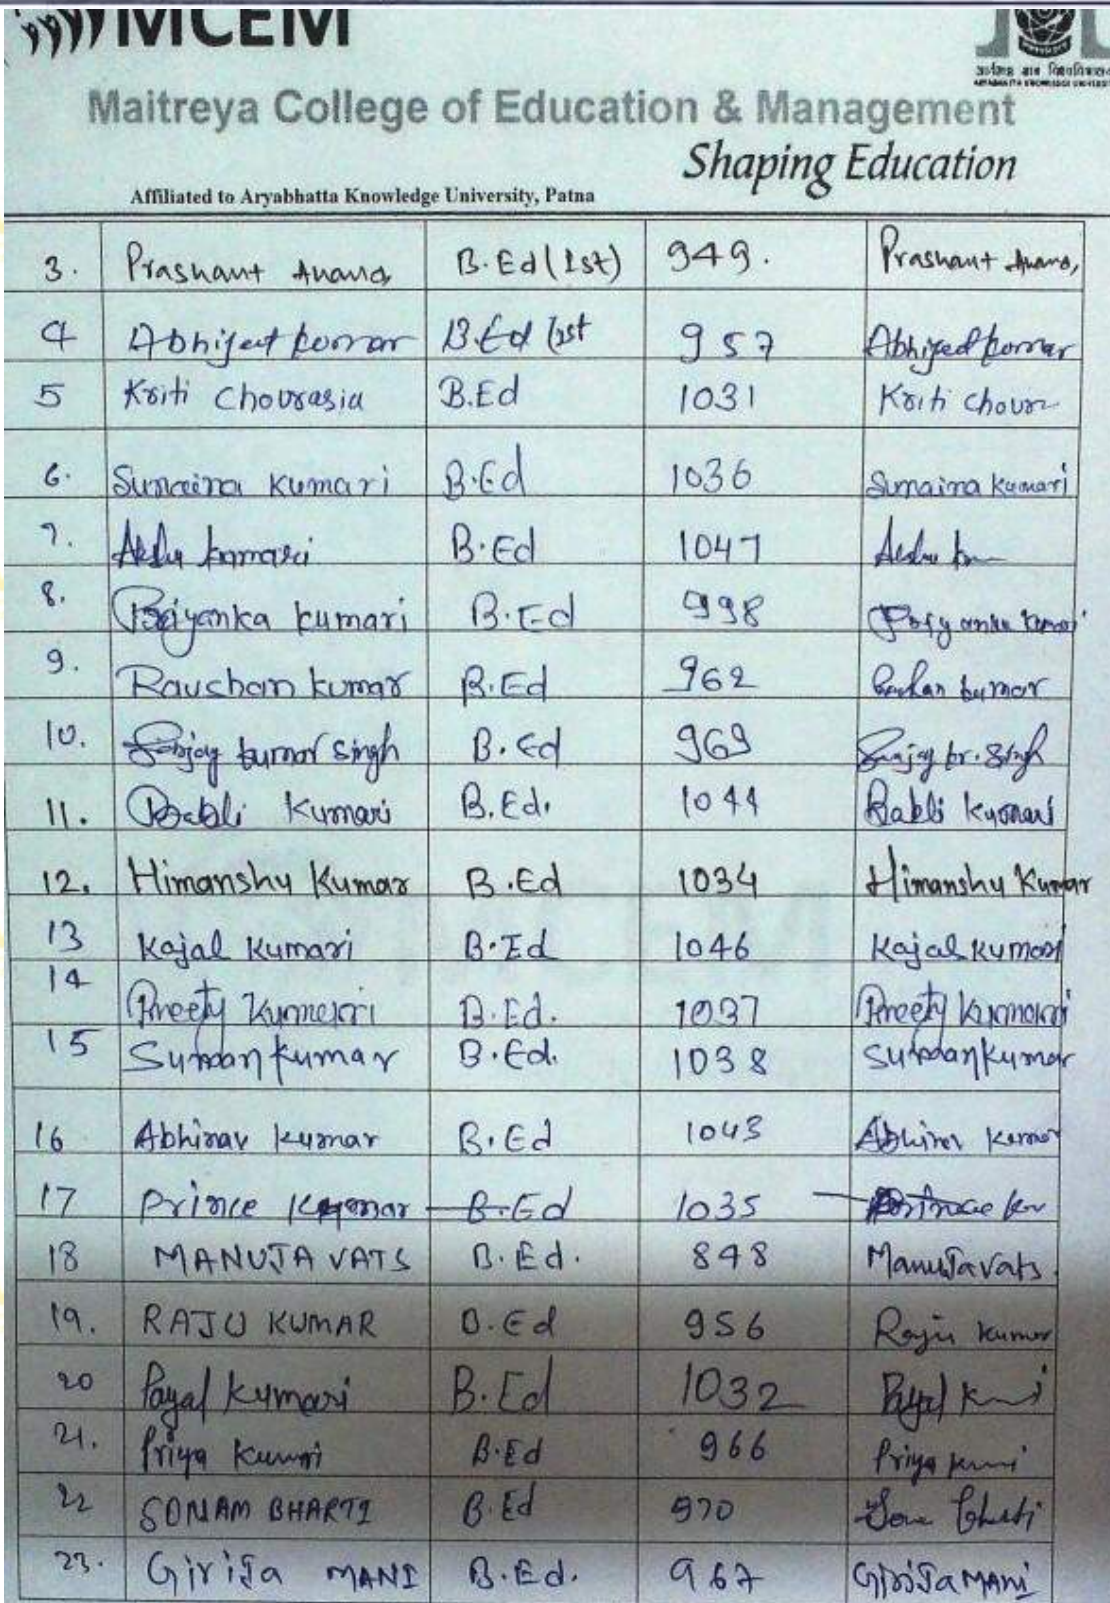 MCEM
आर्यभट्ट ज्ञान विश्वविद्यालय
ARYABHATTA KNOWLEDGE UNIVERSITY
Maitreya College of Education & Management
Shaping Education
Affiliated to Aryabhatta Knowledge University, Patna
3. Prashant Anand B.Ed (1st) 949. Prashant Anand,
4 Abhijeet kumar B.Ed 1st 957 Abhijeet kumar
5 Kriti Chourasia B.Ed 1031 Kriti Chour
6. Sunaina Kumari B.Ed 1036 Sunaina Kumari
7. kumari B.Ed 1047
8. Priyanka kumari B.Ed 998 Priyanka kumari
9. Raushan kumar B.Ed 962 kumar
10. Sanjay kumar Singh B.Ed 969 Sanjay kr. Singh
11. Babli Kumari B.Ed. 1044 Babli Kumari
12. Himanshu Kumar B.Ed 1034 Himanshu Kumar
13 Kajal Kumari B.Ed 1046 Kajal Kumari
14 Preety Kumari B.Ed. 1037 Preety Kumari
15 Suman kumar B.Ed. 1038 Suman Kumar
16 Abhinav Kumar B.Ed 1043 Abhinav Kumar
17 Prince Kumar B.Ed 1035 Prince kr
18 MANUJA VATS B.Ed. 848 Manuja Vats
19. RAJU KUMAR B.Ed 956 Raju Kumar
20 Payal Kumari B.Ed 1032 Payal
21. Priya Kumari B.Ed 966 Priya
22 SONAM BHARTI B.Ed 970
23. Girija MANI B.Ed. 967 Girija MANI